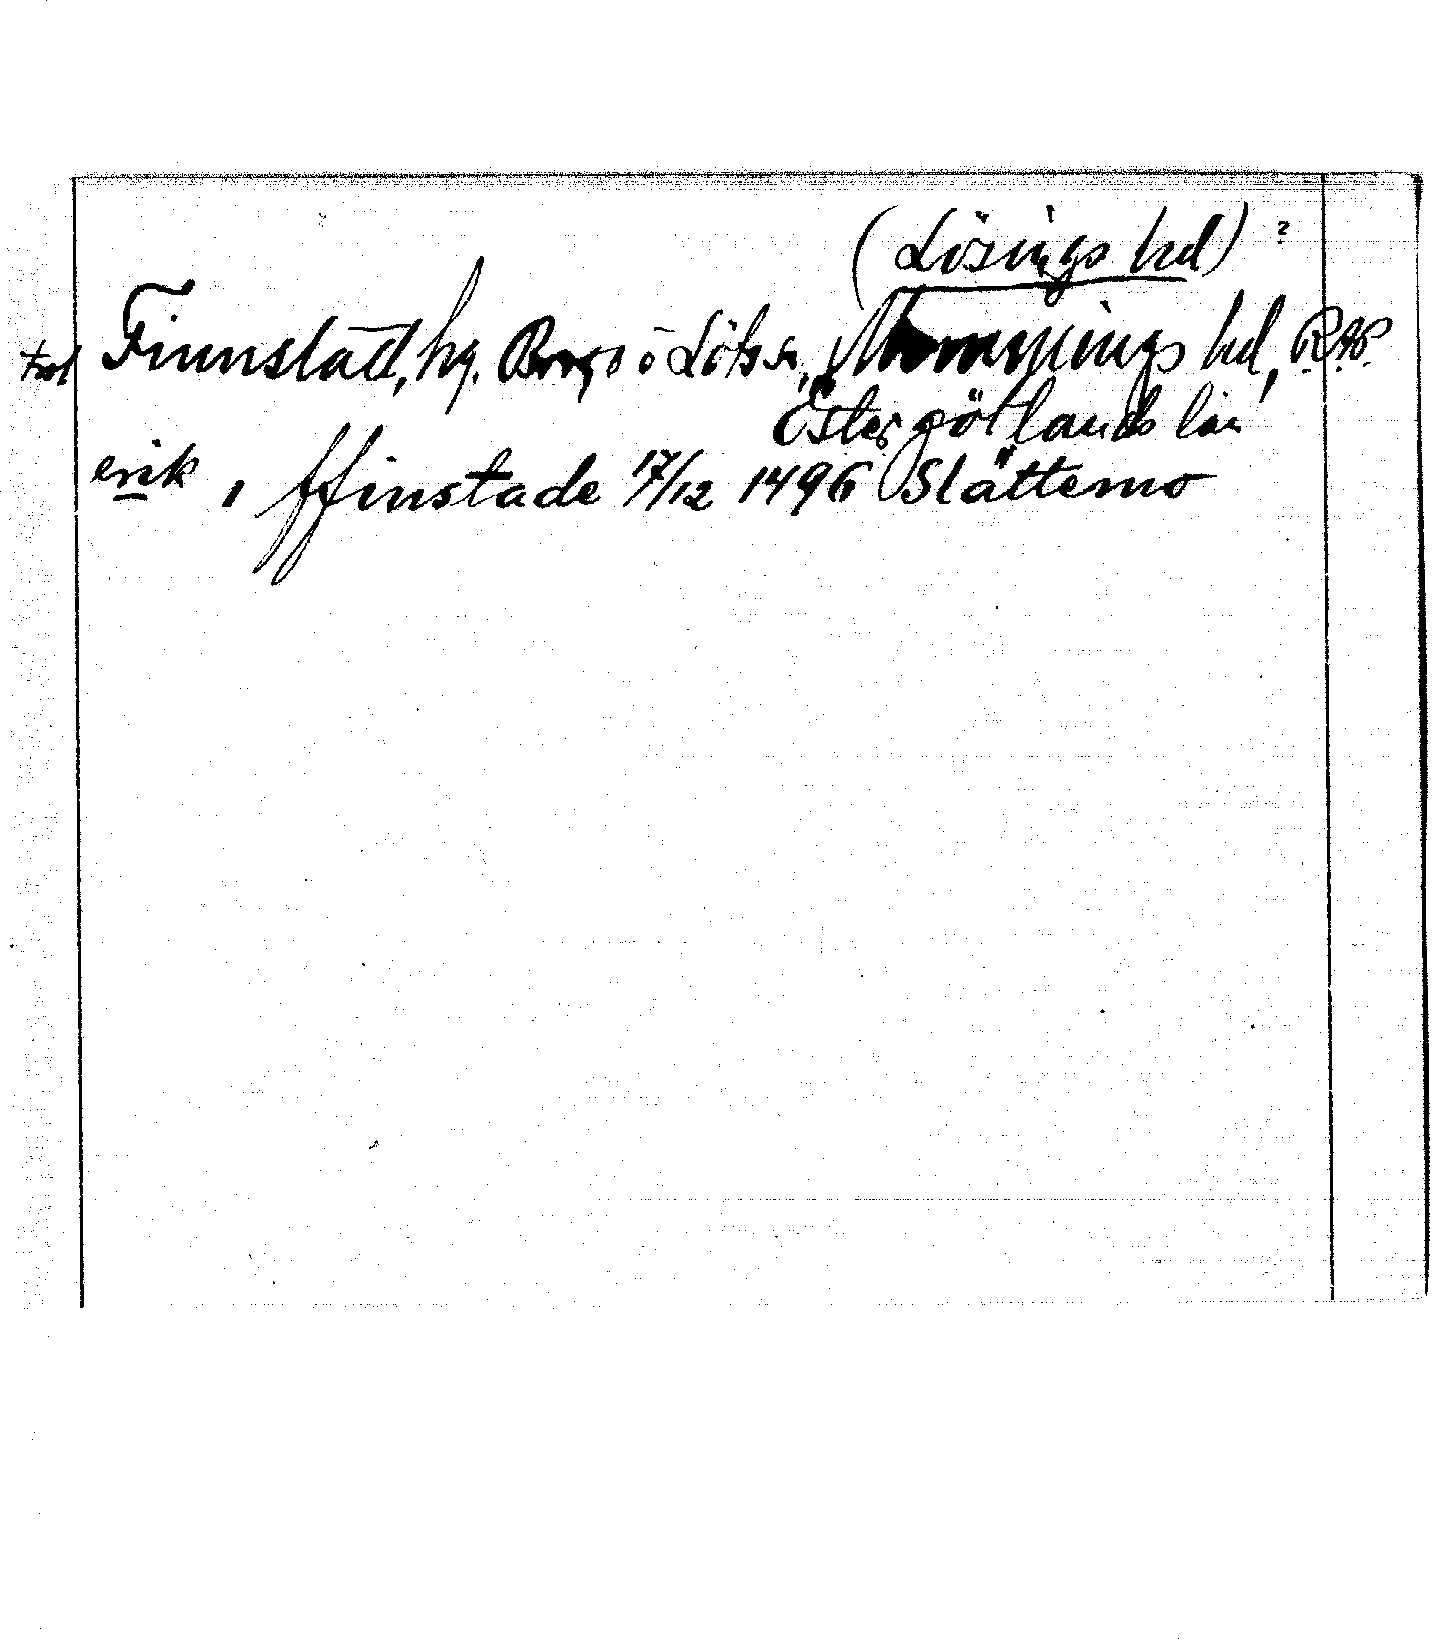 (Lösings hd) ?
Finnstad, hg. Borgs o Löts sn, Memmings hd, RAP.
Östergötlands län
erik, ffinstade 17/12 1496 Slättemo